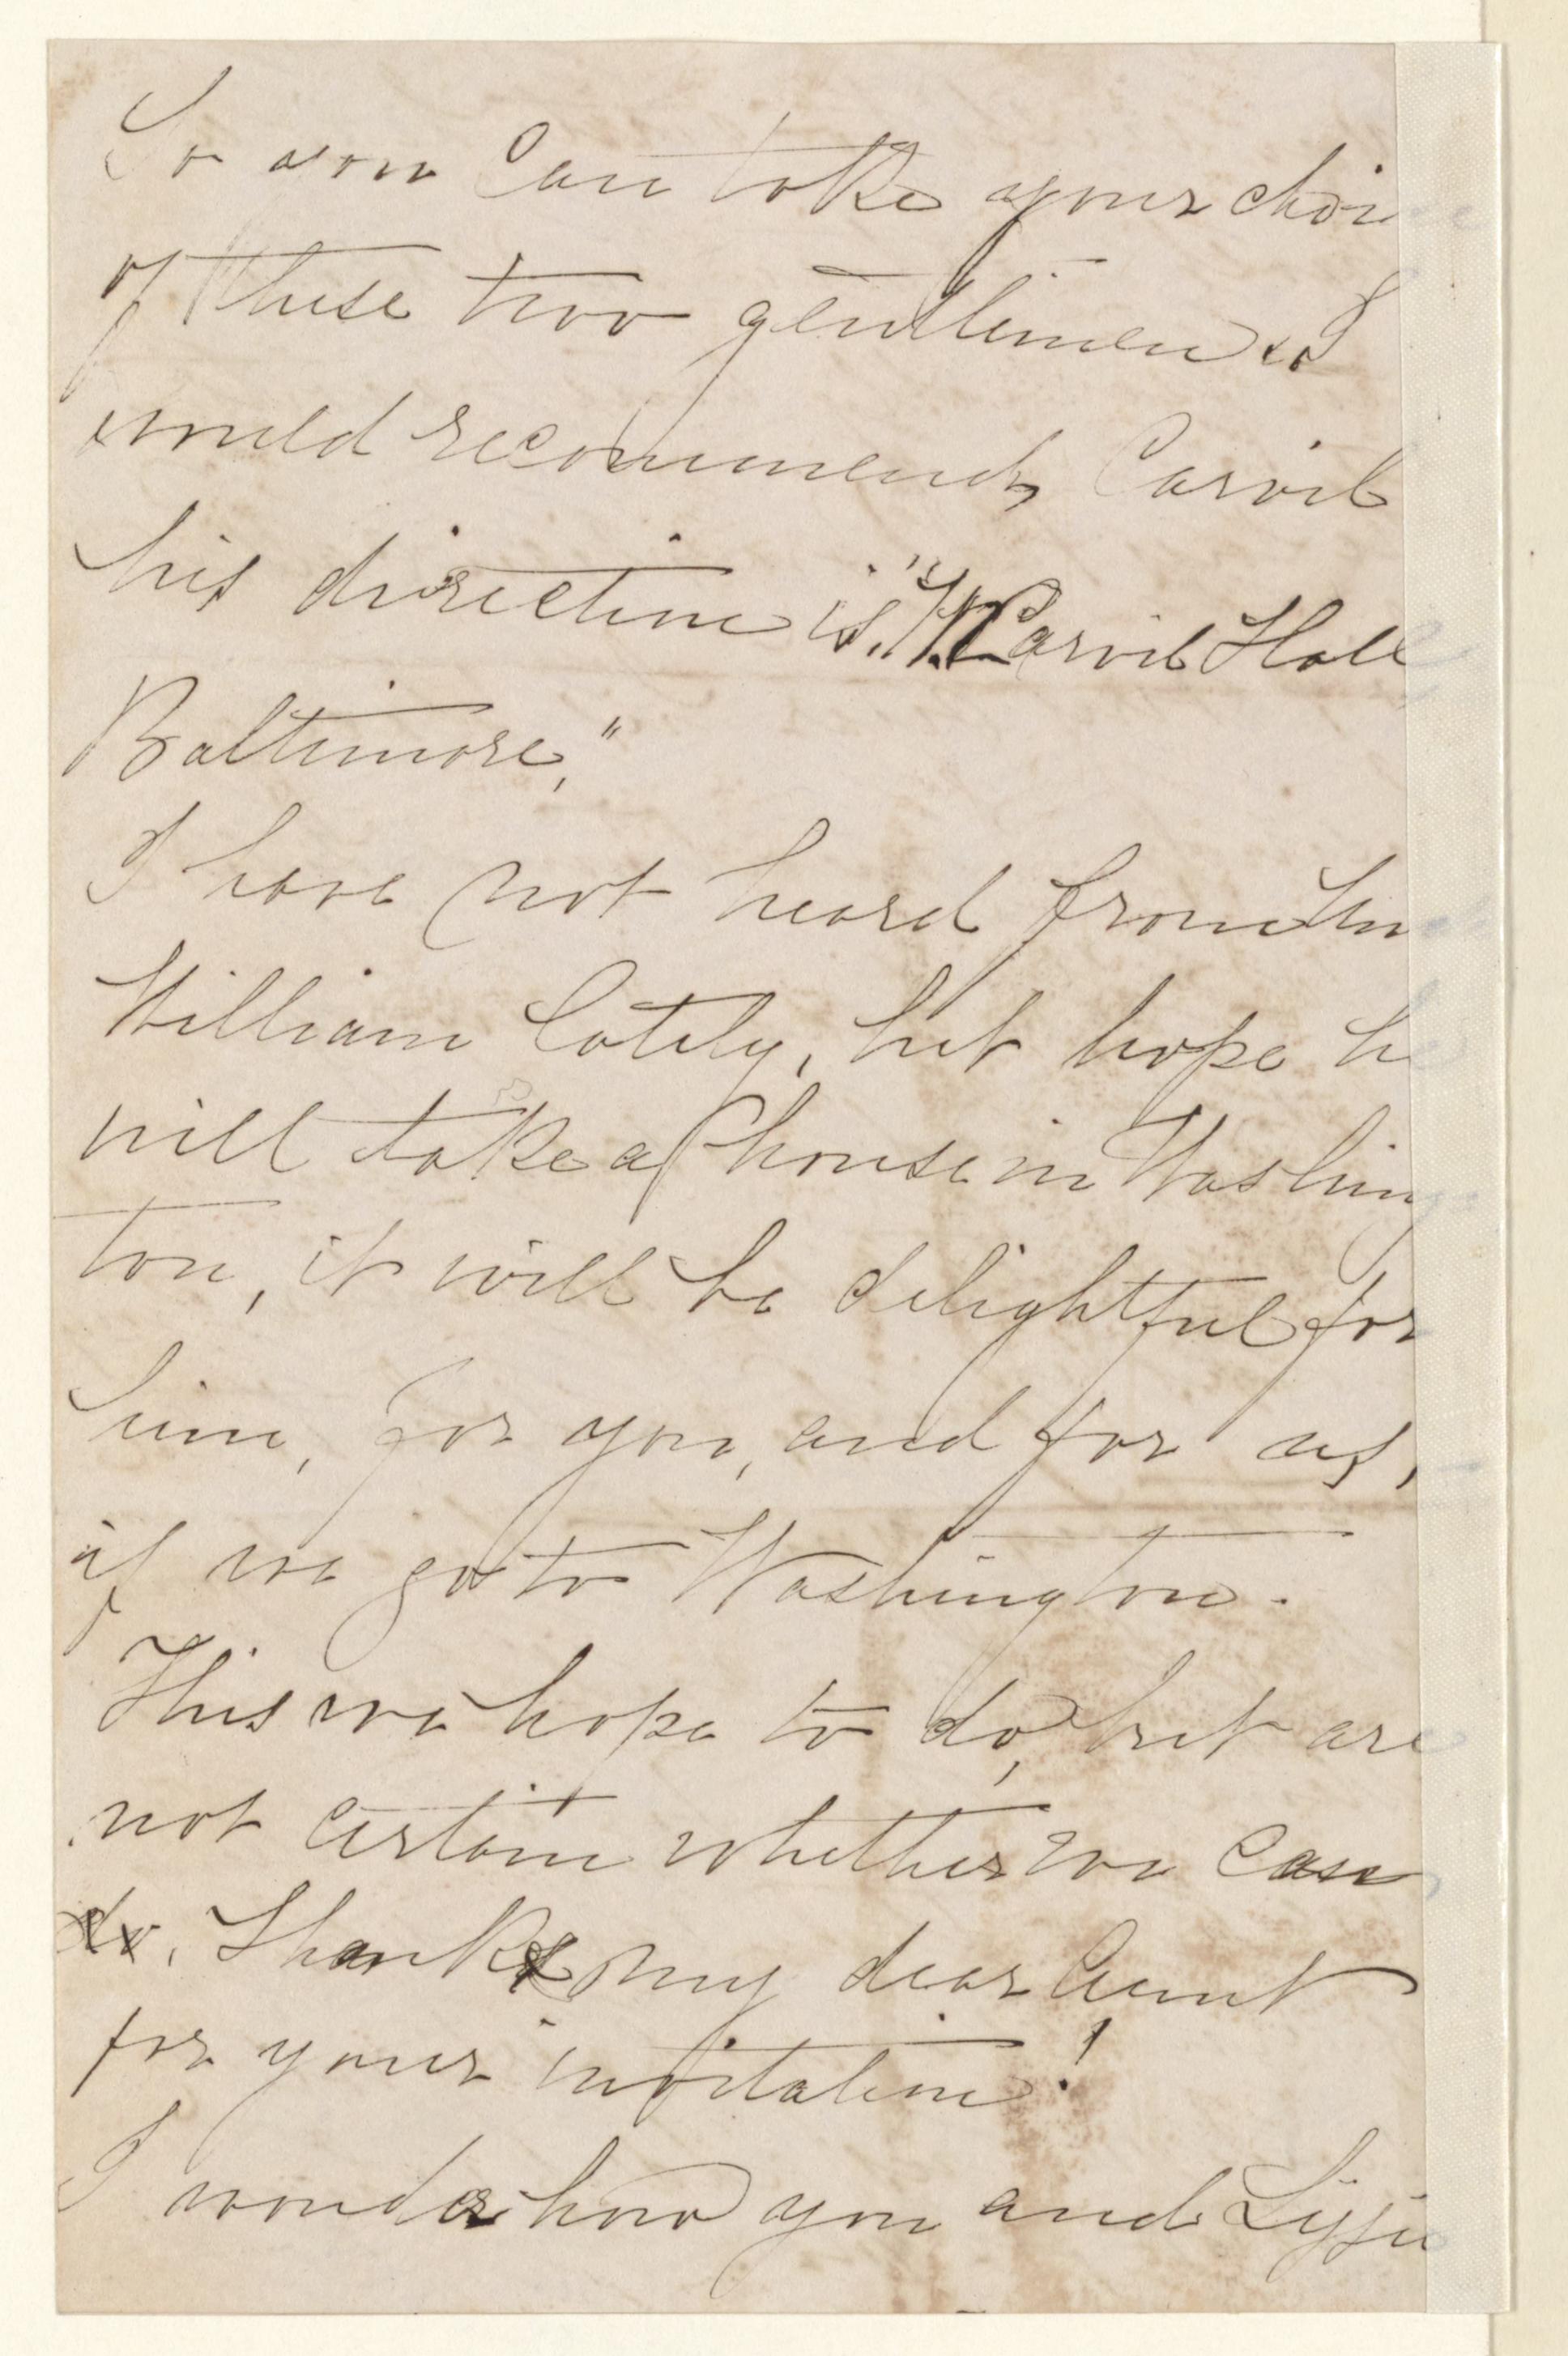 So you can take your choi
of these two gentlemen. I
would recommend, Carvil
his direction is. "W. Carvil Hall
Baltimore,"
I have not heard from
William lately, but hope he
will take a house in Washing
ton, it will be delightful for
him, for you, and for us,
if we go to Washington.
This we hope to do, but are
not certain whether we can
do. Thanks my dear Aunt
for your invitation!
I wonder how you and